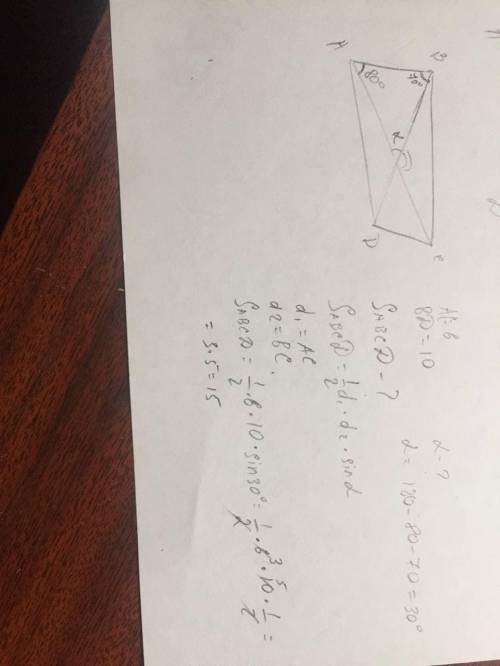 A
B
80°
70°
α
D
C
AC=6
BD=10
α=?
α= 180-80-70=30°
SABCD-?
SABCD=1/2 d1·d2·sinα
d1=AC
d2=BC.
SABCD=1/2·6·10·sin30°=1/2·6³·10⁵·1/2=
=3·5=15